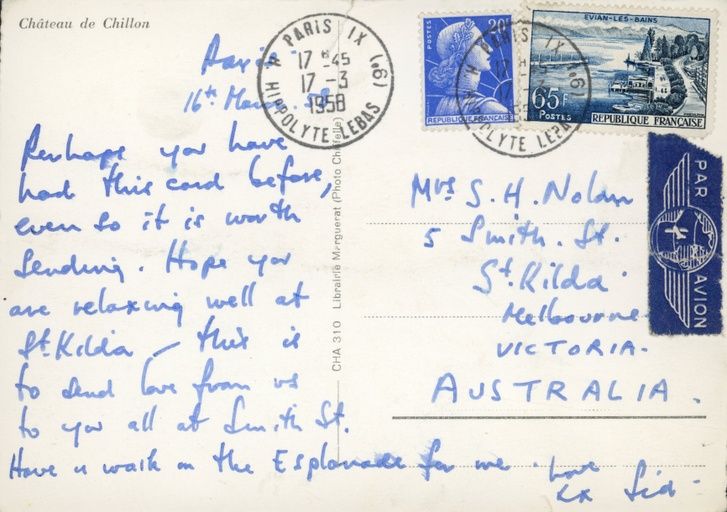 Château de Chillon
Paris
16th March 58
Perhaps you have
had this card before,
even so it is worth
sending. Hope you
are relaxing well at
St. Kilda – this is
to send love from us
to you all at Smith St.
Have a walk on the Esplanade for me. Love
xx Sid.
CHA 310 Librairie Marguerat (Photo
PARIS IX (9e)
17 H 45
17 - 3
1958
R. HIPPOLYTE LEBAS
POSTES
20F
REPUBLIQUE FRANÇAISE
EVIAN-LES-BAINS
65F
POSTES
REPUBLIQUE FRANÇAISE
PAR AVION
Mrs S. H. Nolan
5 Smith. St.
St. Kilda.
Melbourne.
VICTORIA.
AUSTRALIA.